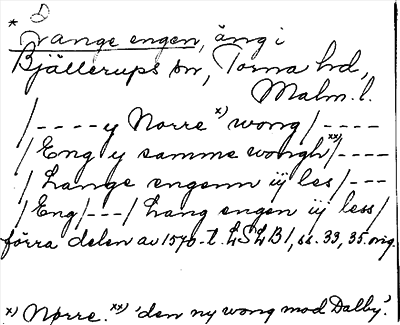 * Lange engen, äng i
Bjällerups sn, Torna hd,
Malm. l.
/----y Norre x) wong/----
/Eng y samme wongh xx)/----
/Lange engenn iij les/---
/Eng/---/Lang engen iij less/
förra delen av 1570-t. LSLB1, ss. 33, 35. orig.
x) Nørre. xx) 'den ny wong mod Dalby'.